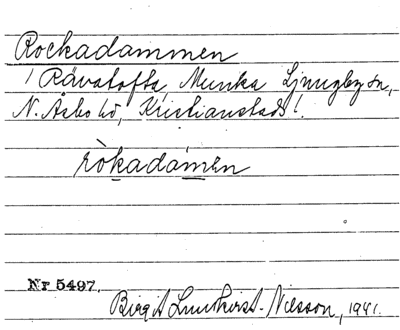 Rockadammen
i Rävatofta, Munka Ljungby sn,
N. Åsbo hd, Kristianstads l.
ròkadámen
Nr 5497.
Birgit Lundkvist-Nilsson, 1941.